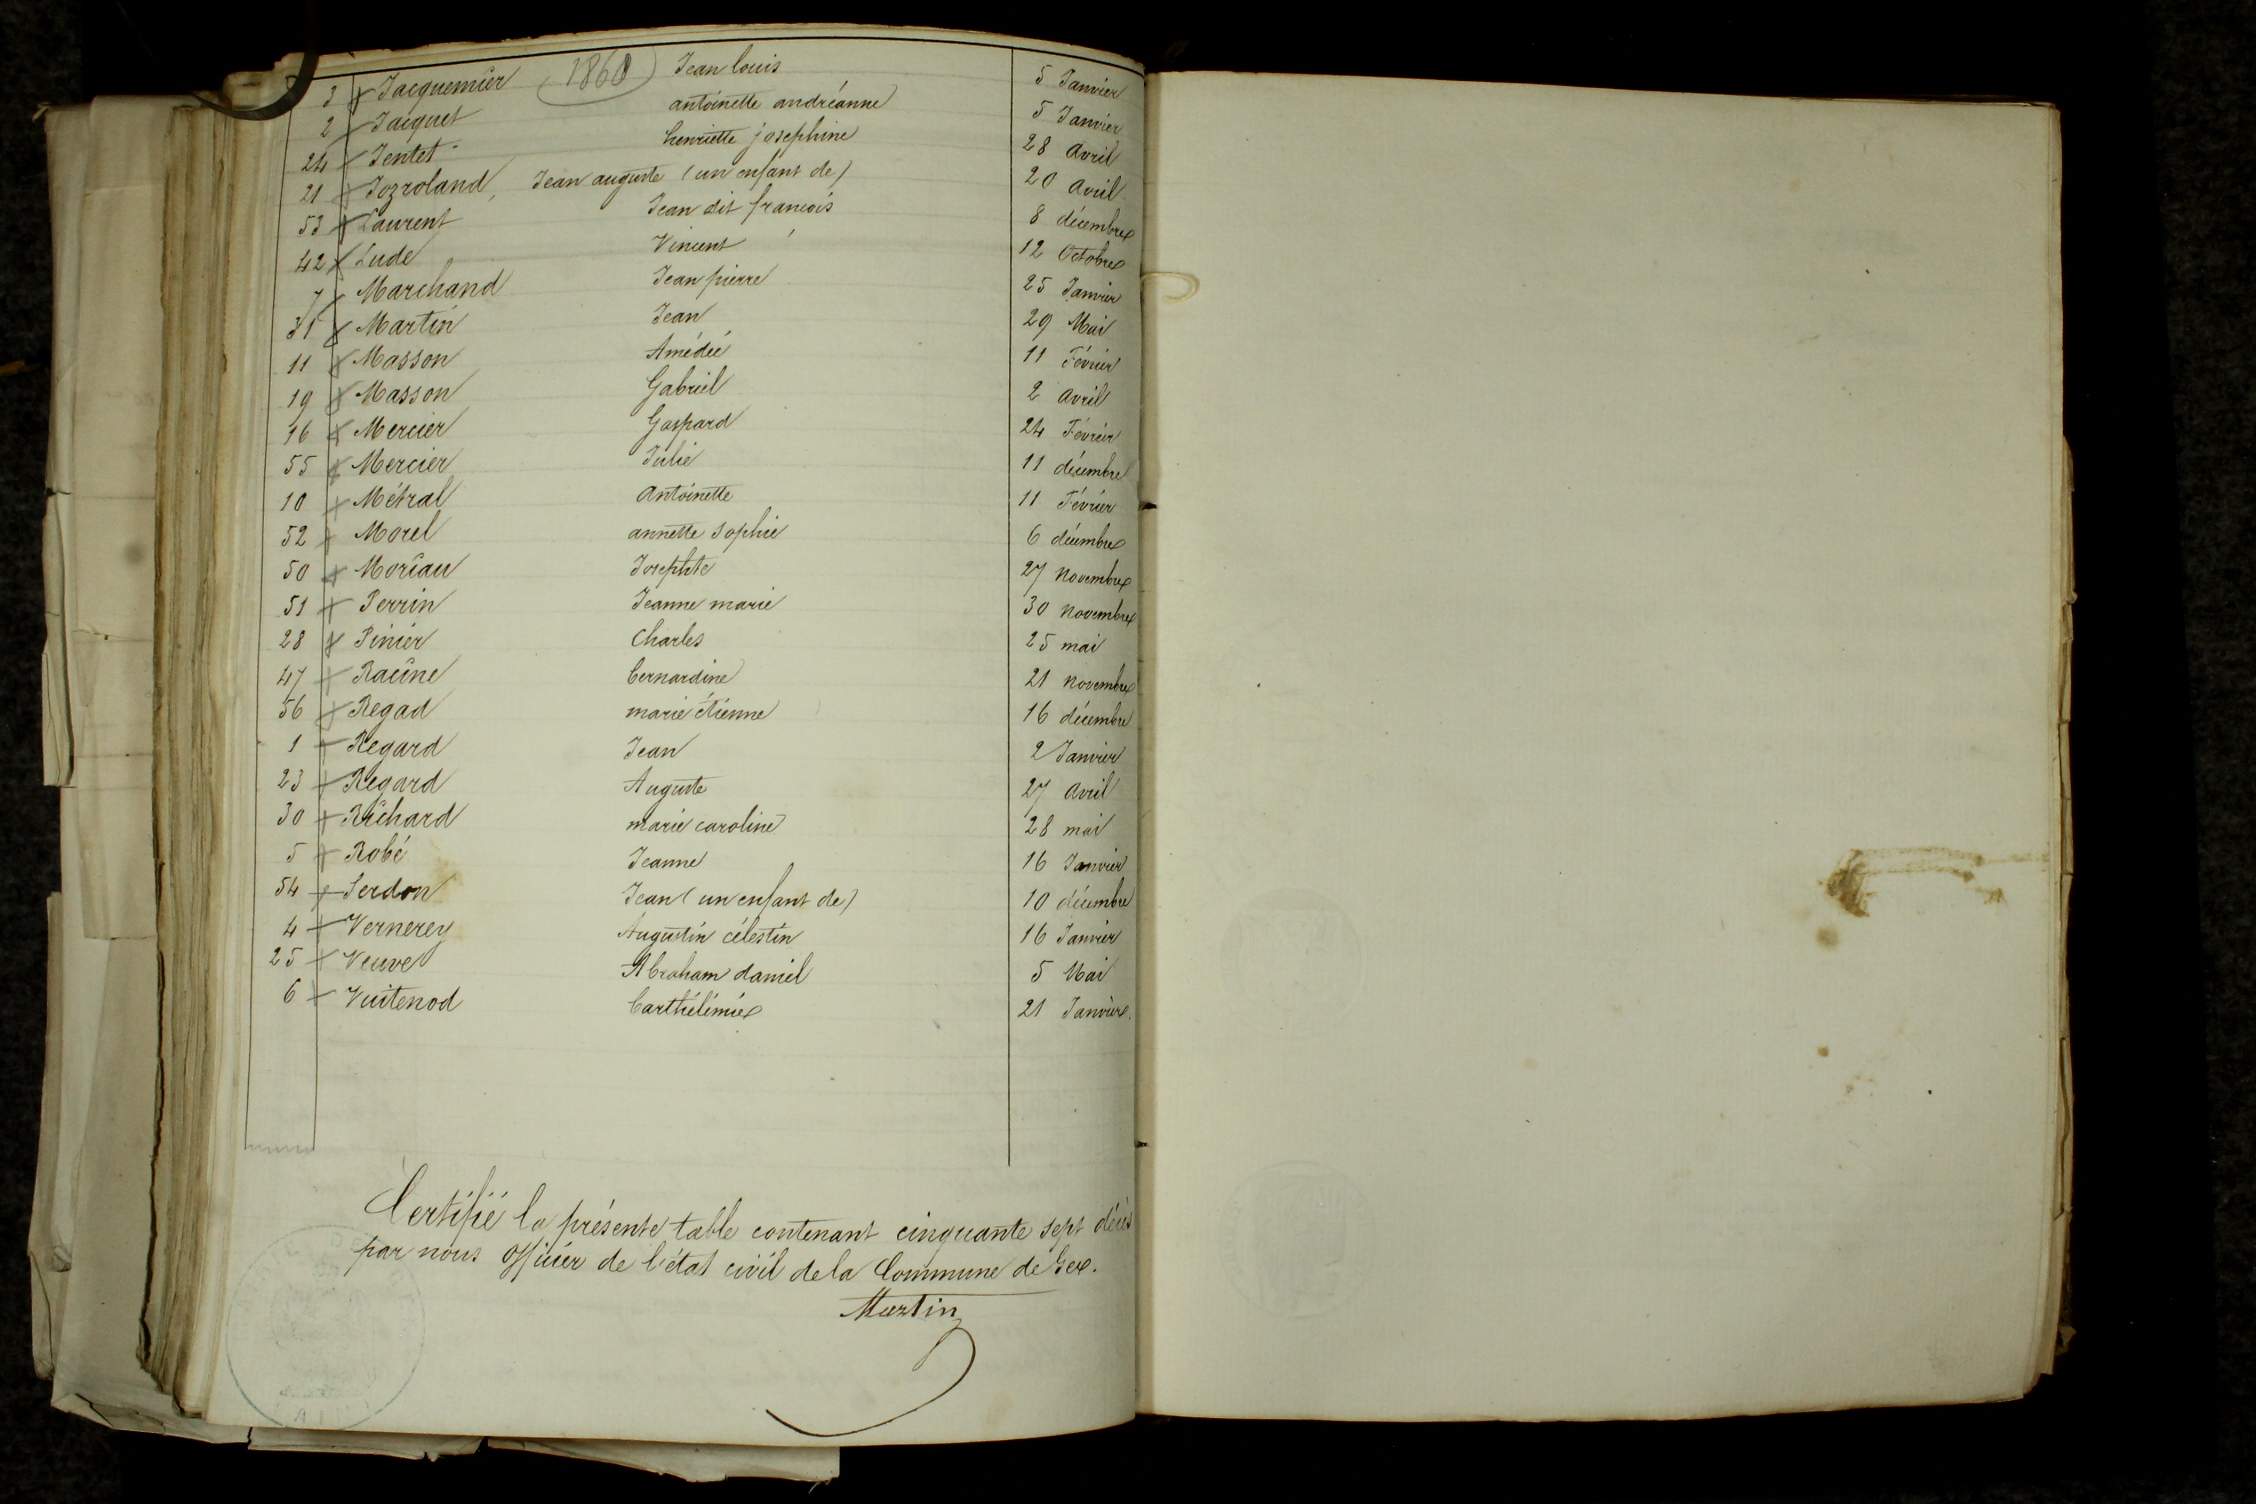 1860
3 Jacquemier Jean louis 5 Janvier
2 Jacquet antoinette andréanne 5 Janvier
24 Jentet henriette joséphine 28 avril
21 Jozroland, Jean auguste (un enfant de) 20 avril
53 Laurent Jean dit francois 8 décembre
42 Lude Vincent 12 Octobre
7 Marchand Jean pierre 25 Janvier
31 Martin Jean 29 Mai
11 Masson Amédée 11 Février
19 Masson Gabriel 2 avril
16 Mercier Gaspard 24 Février
55 Mercier Julie 11 décembre
10 Métral antoinette 11 Février
52 Morel annette sophie 6 décembre
50 Moriau Josephte 27 novembre
51 Perrin Jeanne marie 30 novembre
28 Pinier Charles 25 mai
47 Racine bernardine 21 novembre
56 Regad marie étienne 16 décembre
1 Regard Jean 2 Janvier
23 Regard Auguste 27 avril
30 Richard marie caroline 28 mai
5 Robé Jeanne 16 Janvier
54 Serdon Jean (un enfant de) 10 décembre
4 Vernerey Augustin célestin 16 Janvier
25 Veuve Abraham daniel 5 Mai
6 Vuitenod barthélémie 21 Janvier.
Certifié la présente table contenant cinquante sept décès
par nous officier de l'état civil de la Commune de Gex.
Martin